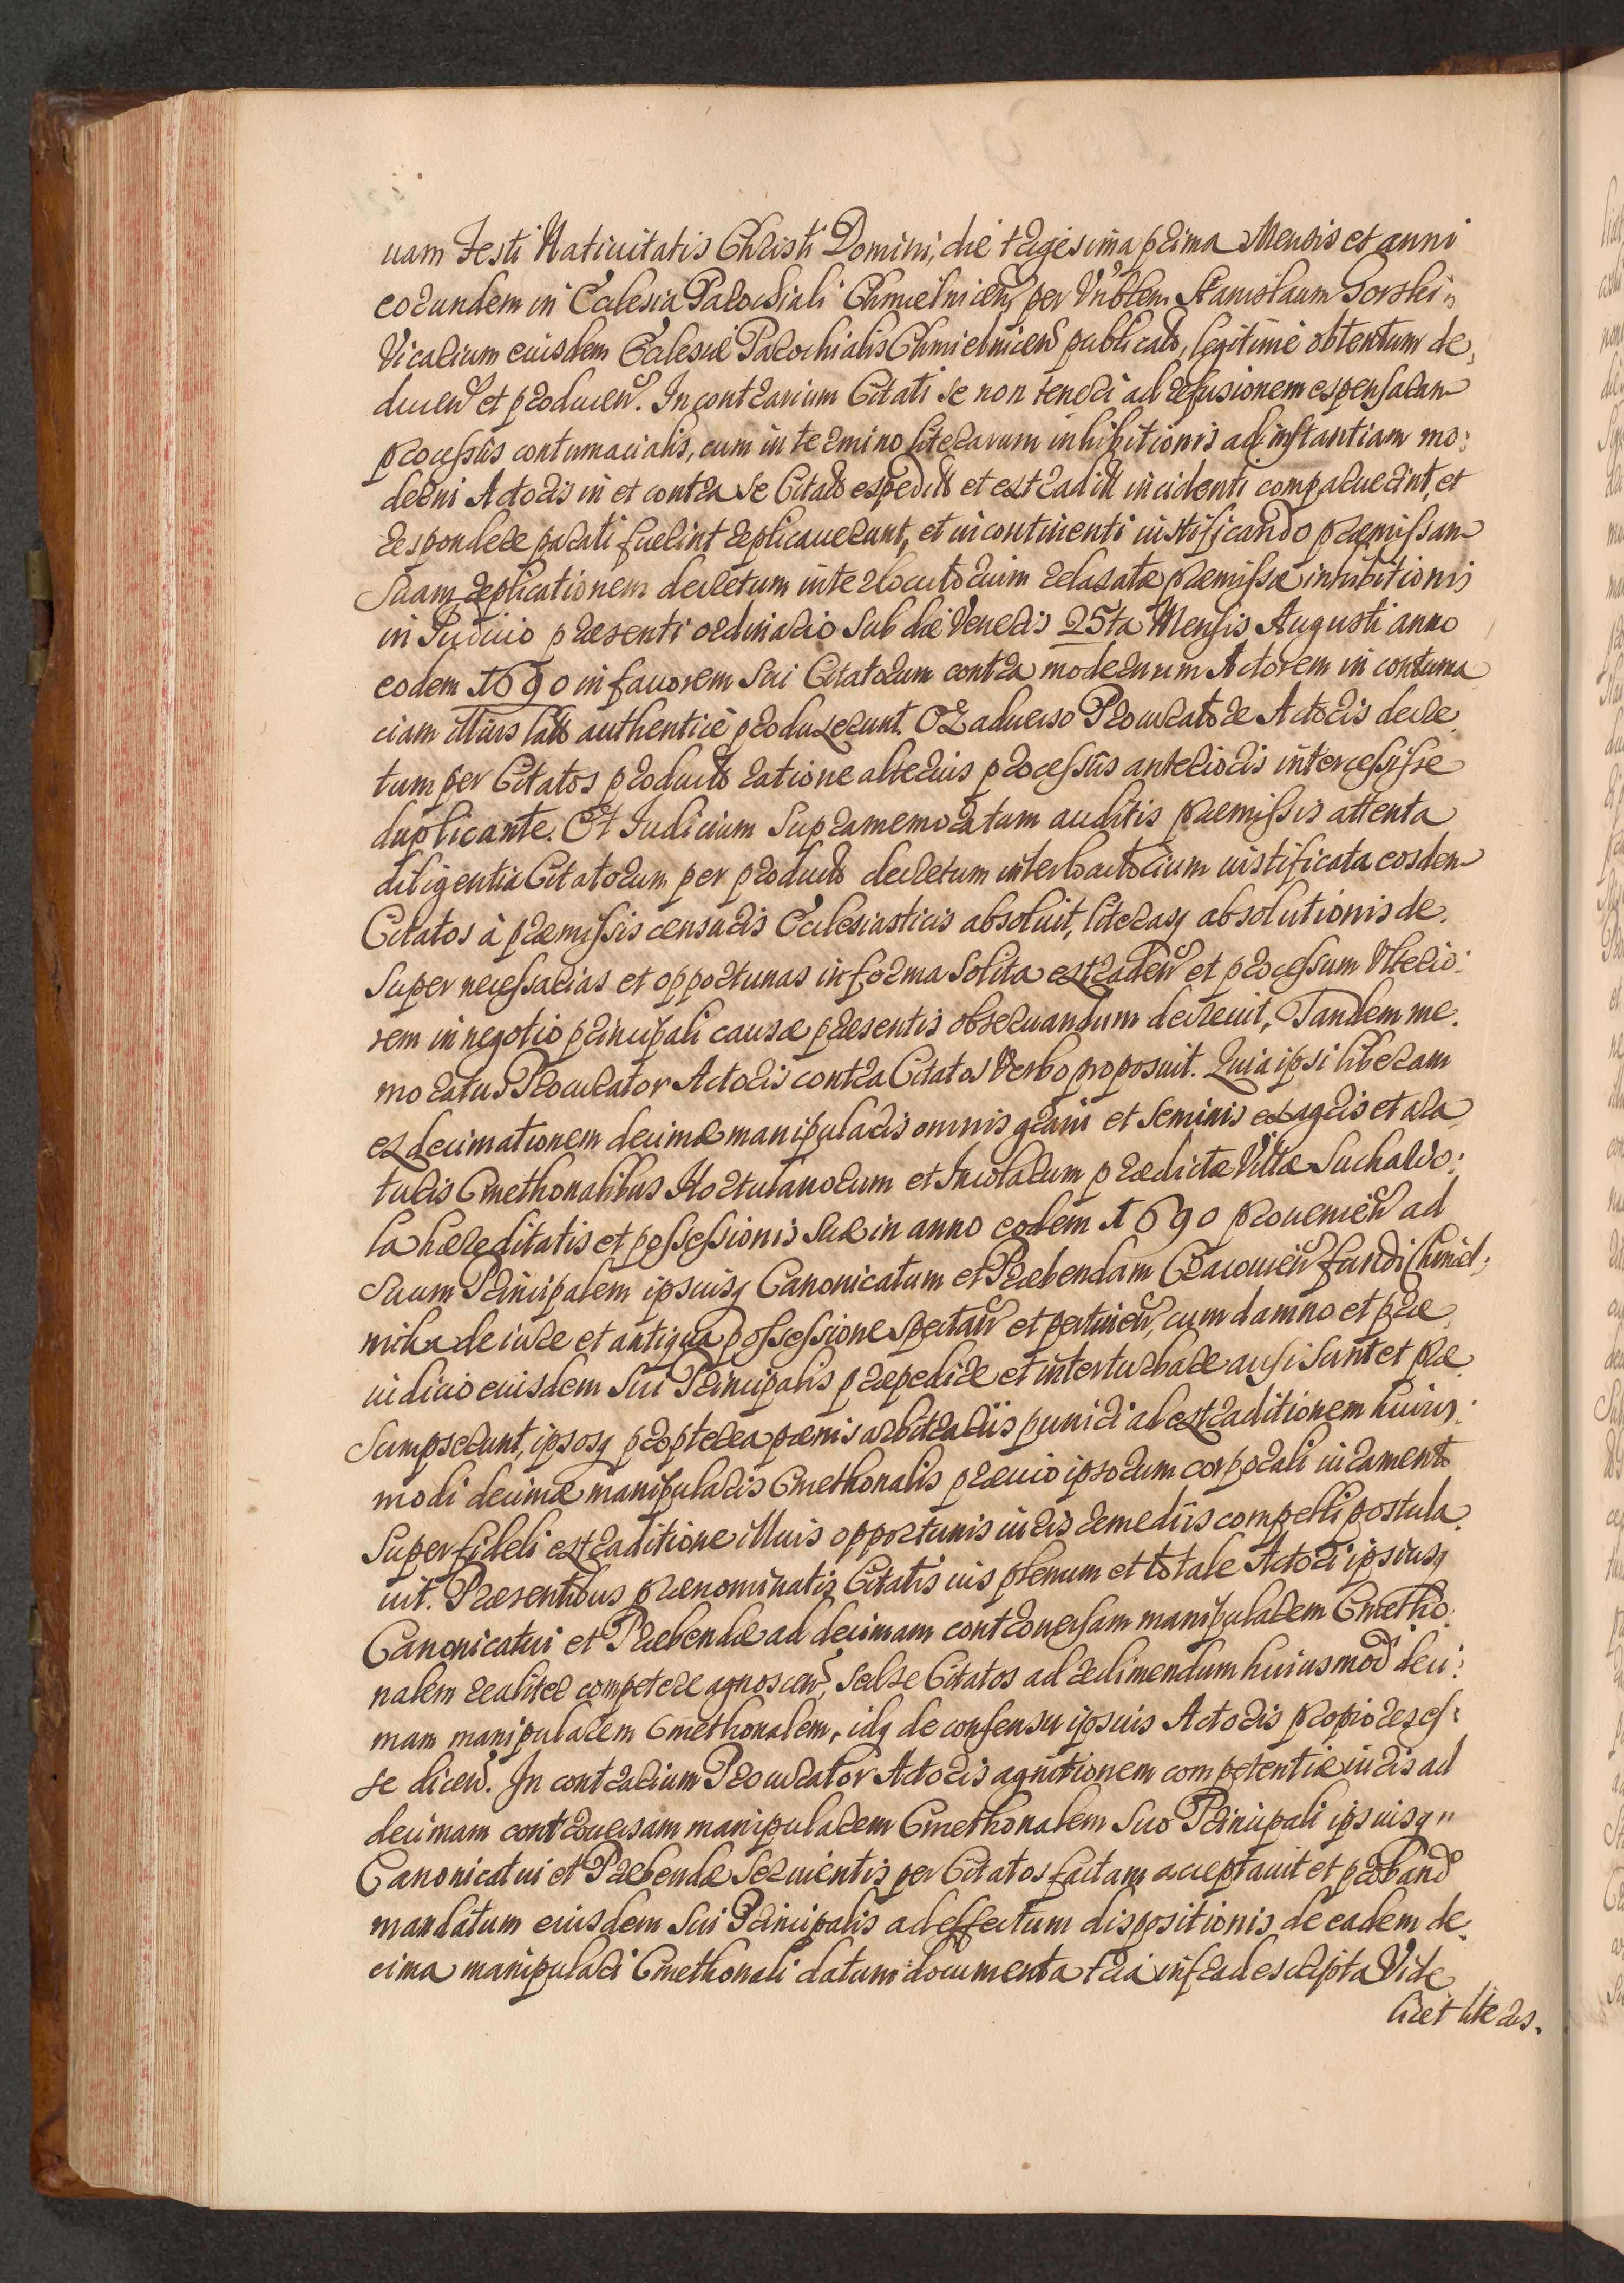 uam Festi Natiuitatis Christi Domini, die trigesima prima Mensis et anni
eorundem in Ecclesia Parochiali Chmielnicen̄ per Vnblem Stanislaum Gorski„
Vicarium eiusdem Ecclesiæ Parochialis Chmielnicen̄ publicato, legitimè obtentum de„
ducen̄ et producen̄. In contrarium Citati se non teneri ad refusionem expensarum
processûs contumacialis, cum in termino literarum inhibitionis ad instantiam mo:
derni Actoris in et contra se Citato expedito et extradito incidenti comparuerint, et
respondere parati fuerint replicauerunt, et incontinenti iustificando præmissam
Suam replicationem decretum interlocutorium relaxatæ præmissæ inhibitionis
in Iudicio præsenti ordinario sub die Veneris 25ta Mensis Augusti anno
eodem 1690 in fauorem sui Citatorum contra modernum Actorem in contuma
ciam illius lato authenticè produxerunt. Ex aduerso Procuratore Actoris decre
tum per Citatos producto ratione alterius processûs anterioris intercessisse
duplicante. Et Iudicium Supramemoratum auditis præmissis attenta
diligentia Citatorum per producto decretum interlocutorium iustificata eosdem
Citatos à præmissis censuris Ecclesiasticis absoluit, literasq absolutionis de.
super necessarias et opportunas in forma solita extraden̄ et processum Vlterio:
rem in negotio principali causæ præsentis obseruandum decreuit, Tandem me.
moratus Procurator Actoris contra Citatos Verbo proposuit. Quia ipsi liberam
exdecimationem decimæ manipularis omnis grani et seminis ex agris et ara
turis Cmethonalibus Hortulanorum et Incolarum prædictæ Villæ Suchawo:
la hæreditatis et possessionis suæ in anno eodem 1690 prouenien̄ ad
suum Principalem ipsiusq Canonicatum et Præbendam Cracouien̄ fundi Chmiel:
nik de iure et antiqua possessione spectan̄ et pertinen̄, cum damno et præ
iudicio eiusdem sui Principalis præpedire et interturbare ausi sunt et præ
Sumpserunt, ipsosq proptereà pœnis arbitrariis puniri ad extraditionem huius:
modi decimæ manipularis Cmethonalis præuio ipsorum corporali iuramento
Super fideli extraditione illius opportunis iuris remediis compelli postula.
uit. Præsentibus prænominatis Citatis ius plenum et totale Actori ipsiusq
Canonicatui et Præbendæ ad decimam controuersam manipularem Cmetho.
nalem realiter competere agnoscen̄, sed se Citatos ad redimendum huiusmod̄ deci:
mam manipularem Cmethonalem, idq de consensu ipsius Actoris propiores es:
se dicen̄. In contrarium Procurator Actoris agnitionem competentiæ iuris ad
decimam controuersam manipularem Cmethonalem suo Principali ipsiusq„
Canonicatui et Præbendæ seruientis per Citatos factam acceptauit et proband̄
mandatum eiusdem sui Principalis ad effectum dispositionis de eadem de.
cima manipulari Cmethonali datum documenta tria infradescripta Vide
licet literas.